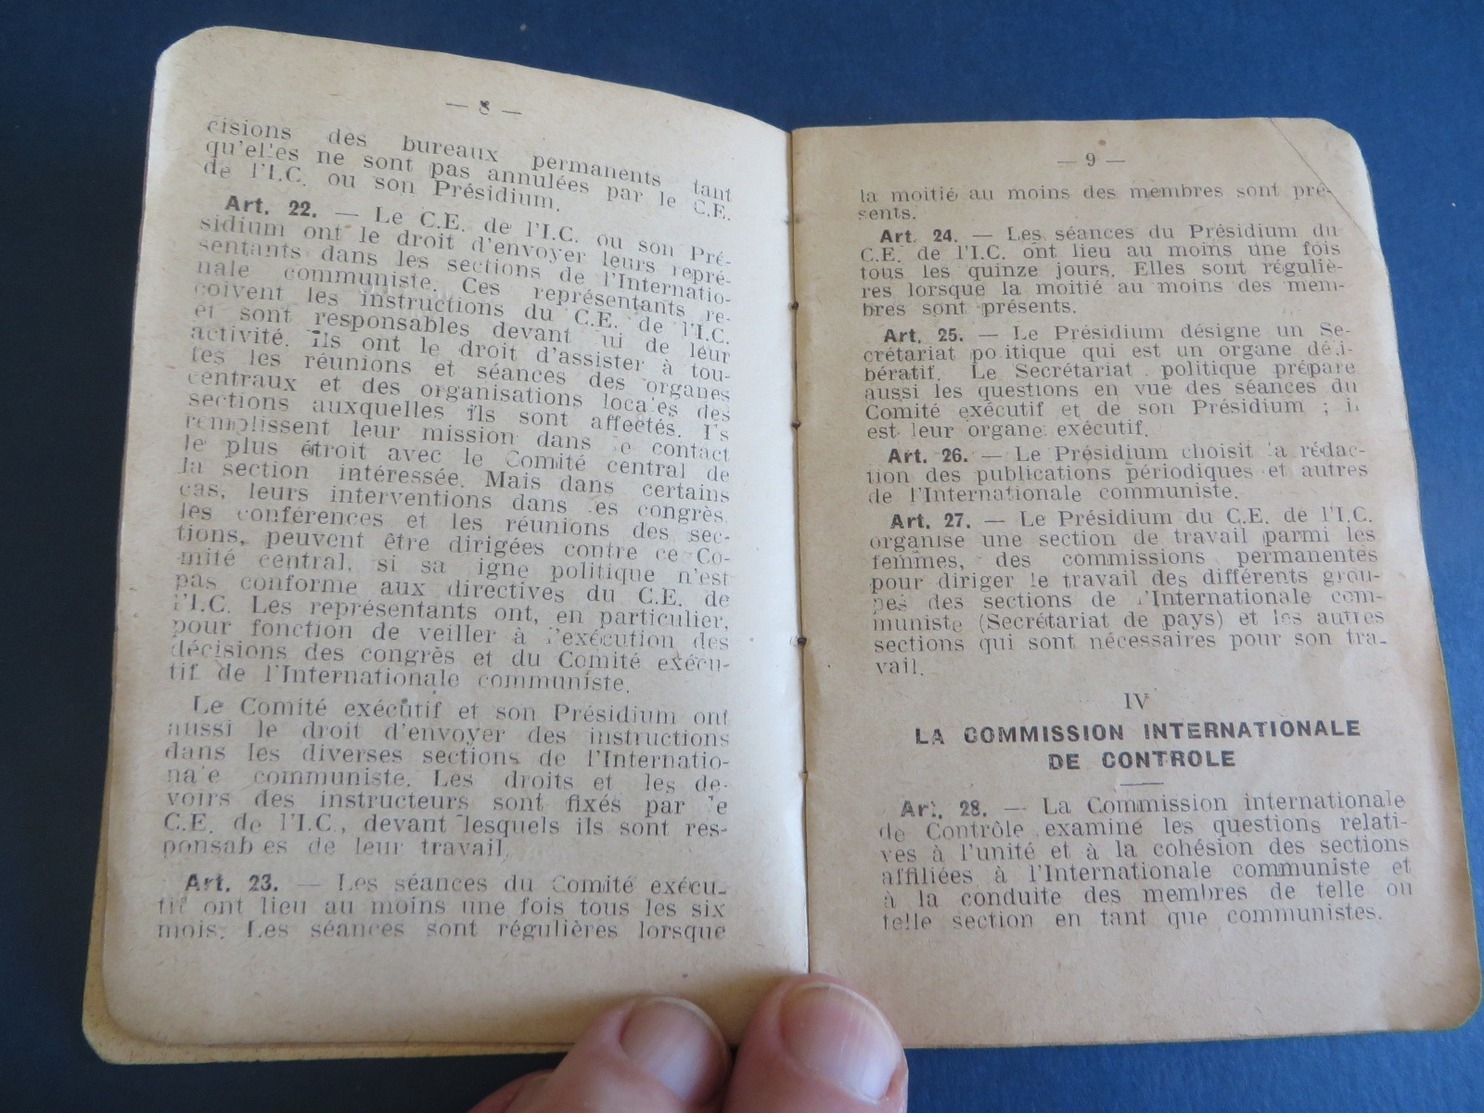 — 8 —
cisions des bureaux permanents tant
qu'elles ne sont pas annulées par le C.E.
de l'I.C. ou son Présidium.
Art. 22. — Le C.E. de l'I.C. ou son Pré-
sidium ont le droit d'envoyer leurs repré-
sentants dans les sections de l'Internatio-
nale communiste. Ces représentants re-
çoivent les instructions du C.E. de l'I.C.
et sont responsables devant ui de leur
activité. Ils ont le droit d'assister à tou-
tes les réunions et séances des organes
centraux et des organisations loca es des
sections auxquelles ils sont affectés. I's
remplissent leur mission dans e contact
le plus étroit avec le Comité central de
la section intéressée. Mais dans certains
cas, leurs interventions dans es congrès
les conférences et les réunions des sec-
tions, peuvent être dirigées contre ce Co-
mité central, si sa igne politique n'est
pas conforme aux directives du C.E. de
l'I.C. Les représentants ont, en particulier,
pour fonction de veiller à l'exécution des
décisions des congrès et du Comité exécu-
tif de l'Internationale communiste.
Le Comité exécutif et son Présidium ont
aussi le droit d'envoyer des instructions
dans les diverses sections de l'Internatio-
na'e communiste. Les droits et les de-
voirs des instructeurs sont fixés par 'e
C.E. de l'I.C., devant lesquels ils sont res-
ponsab es de leur travail.
Art. 23. — Les séances du Comité exécu-
tif ont lieu au moins une fois tous les six
mois. Les séances sont régulières lorsque
— 9 —
la moitié au moins des membres sont pré-
sents.
Art. 24. — Les séances du Présidium du
C.E. de l'I.C. ont lieu au moins une fois
tous les quinze jours. Elles sont réguliè-
res lorsque la moitié au moins des mem-
bres sont présents.
Art. 25. — Le Présidium désigne un Se-
crétariat po itique qui est un organe déli-
bératif. Le Secrétariat politique prépare
aussi les questions en vue des séances du
Comité exécutif et de son Présidium ; il
est leur organe exécutif.
Art. 26. — Le Présidium choisit la rédac-
tion des publications périodiques et autres
de l'Internationale communiste.
Art. 27. — Le Présidium du C.E. de l'I.C.
organise une section de travail parmi les
femmes, des commissions permanentes
pour diriger le travail des différents grou-
pes des sections de l'Internationale com-
muniste (Secrétariat de pays) et les autres
sections qui sont nécessaires pour son tra-
vail.
IV
LA COMMISSION INTERNATIONALE
DE CONTROLE
Art. 28. — La Commission internationale
de Contrôle examine les questions relati-
ves à l'unité et à la cohésion des sections
affiliées à l'Internationale communiste et
à la conduite des membres de telle ou
telle section en tant que communistes.